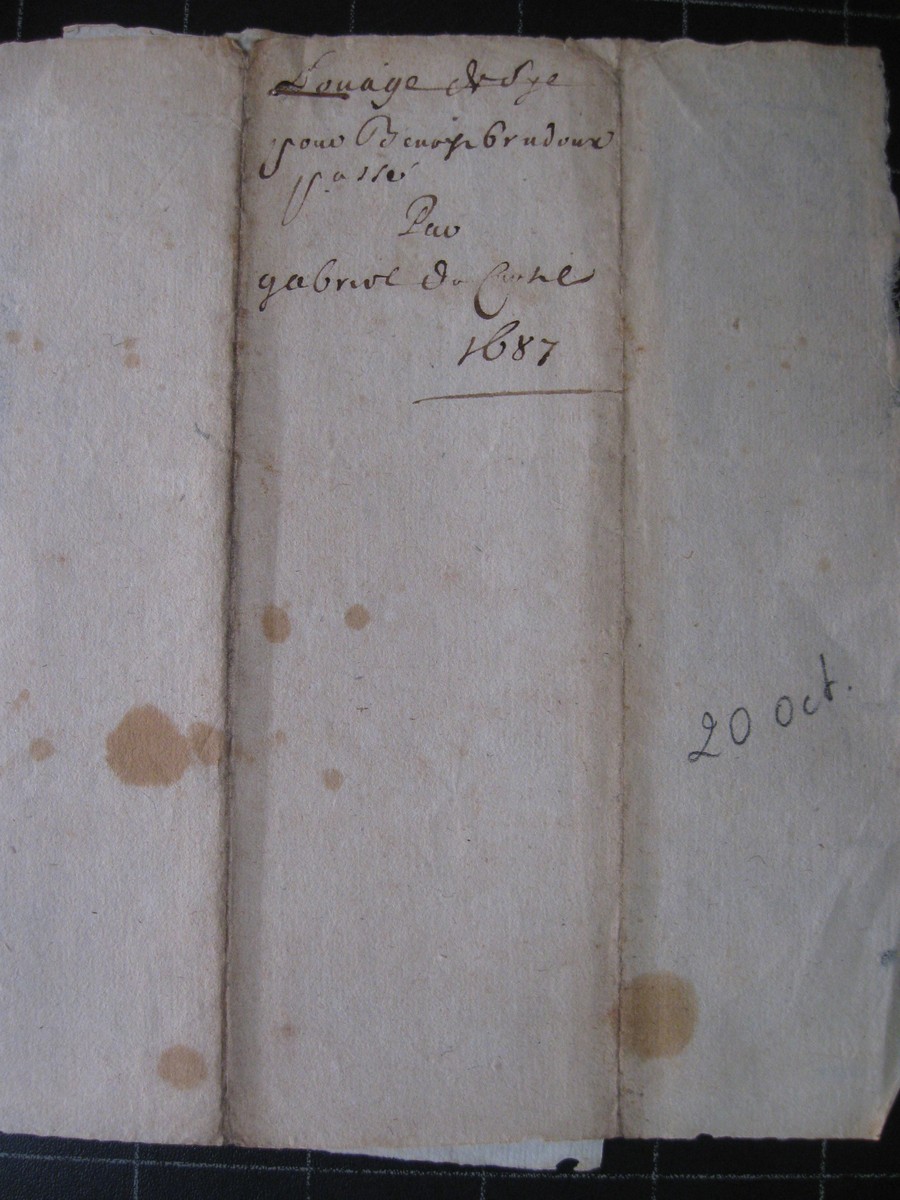 Louage de Sye
pour Benoist brudoux
passé
Par
gabriel du Castel
1687
20 oct.